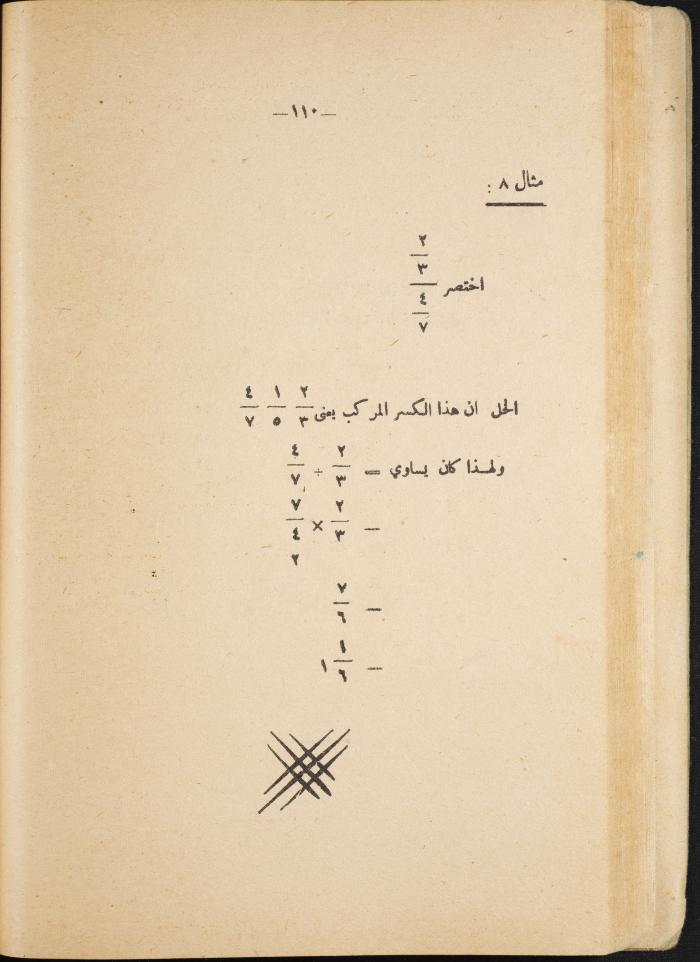 —١١٠—
مثال ٨ :
٢
٣
اختصر
٤
٧
الحل ان هذا الكسر المركب يعنى ٢/٣ ١/٥ ٤/٧
ولهذا كان يساوي = ٢/٣ ÷ ٤/٧
— ٢/٣ × ٧/٤
٢
— ٧/٦
— ١/٦ ١